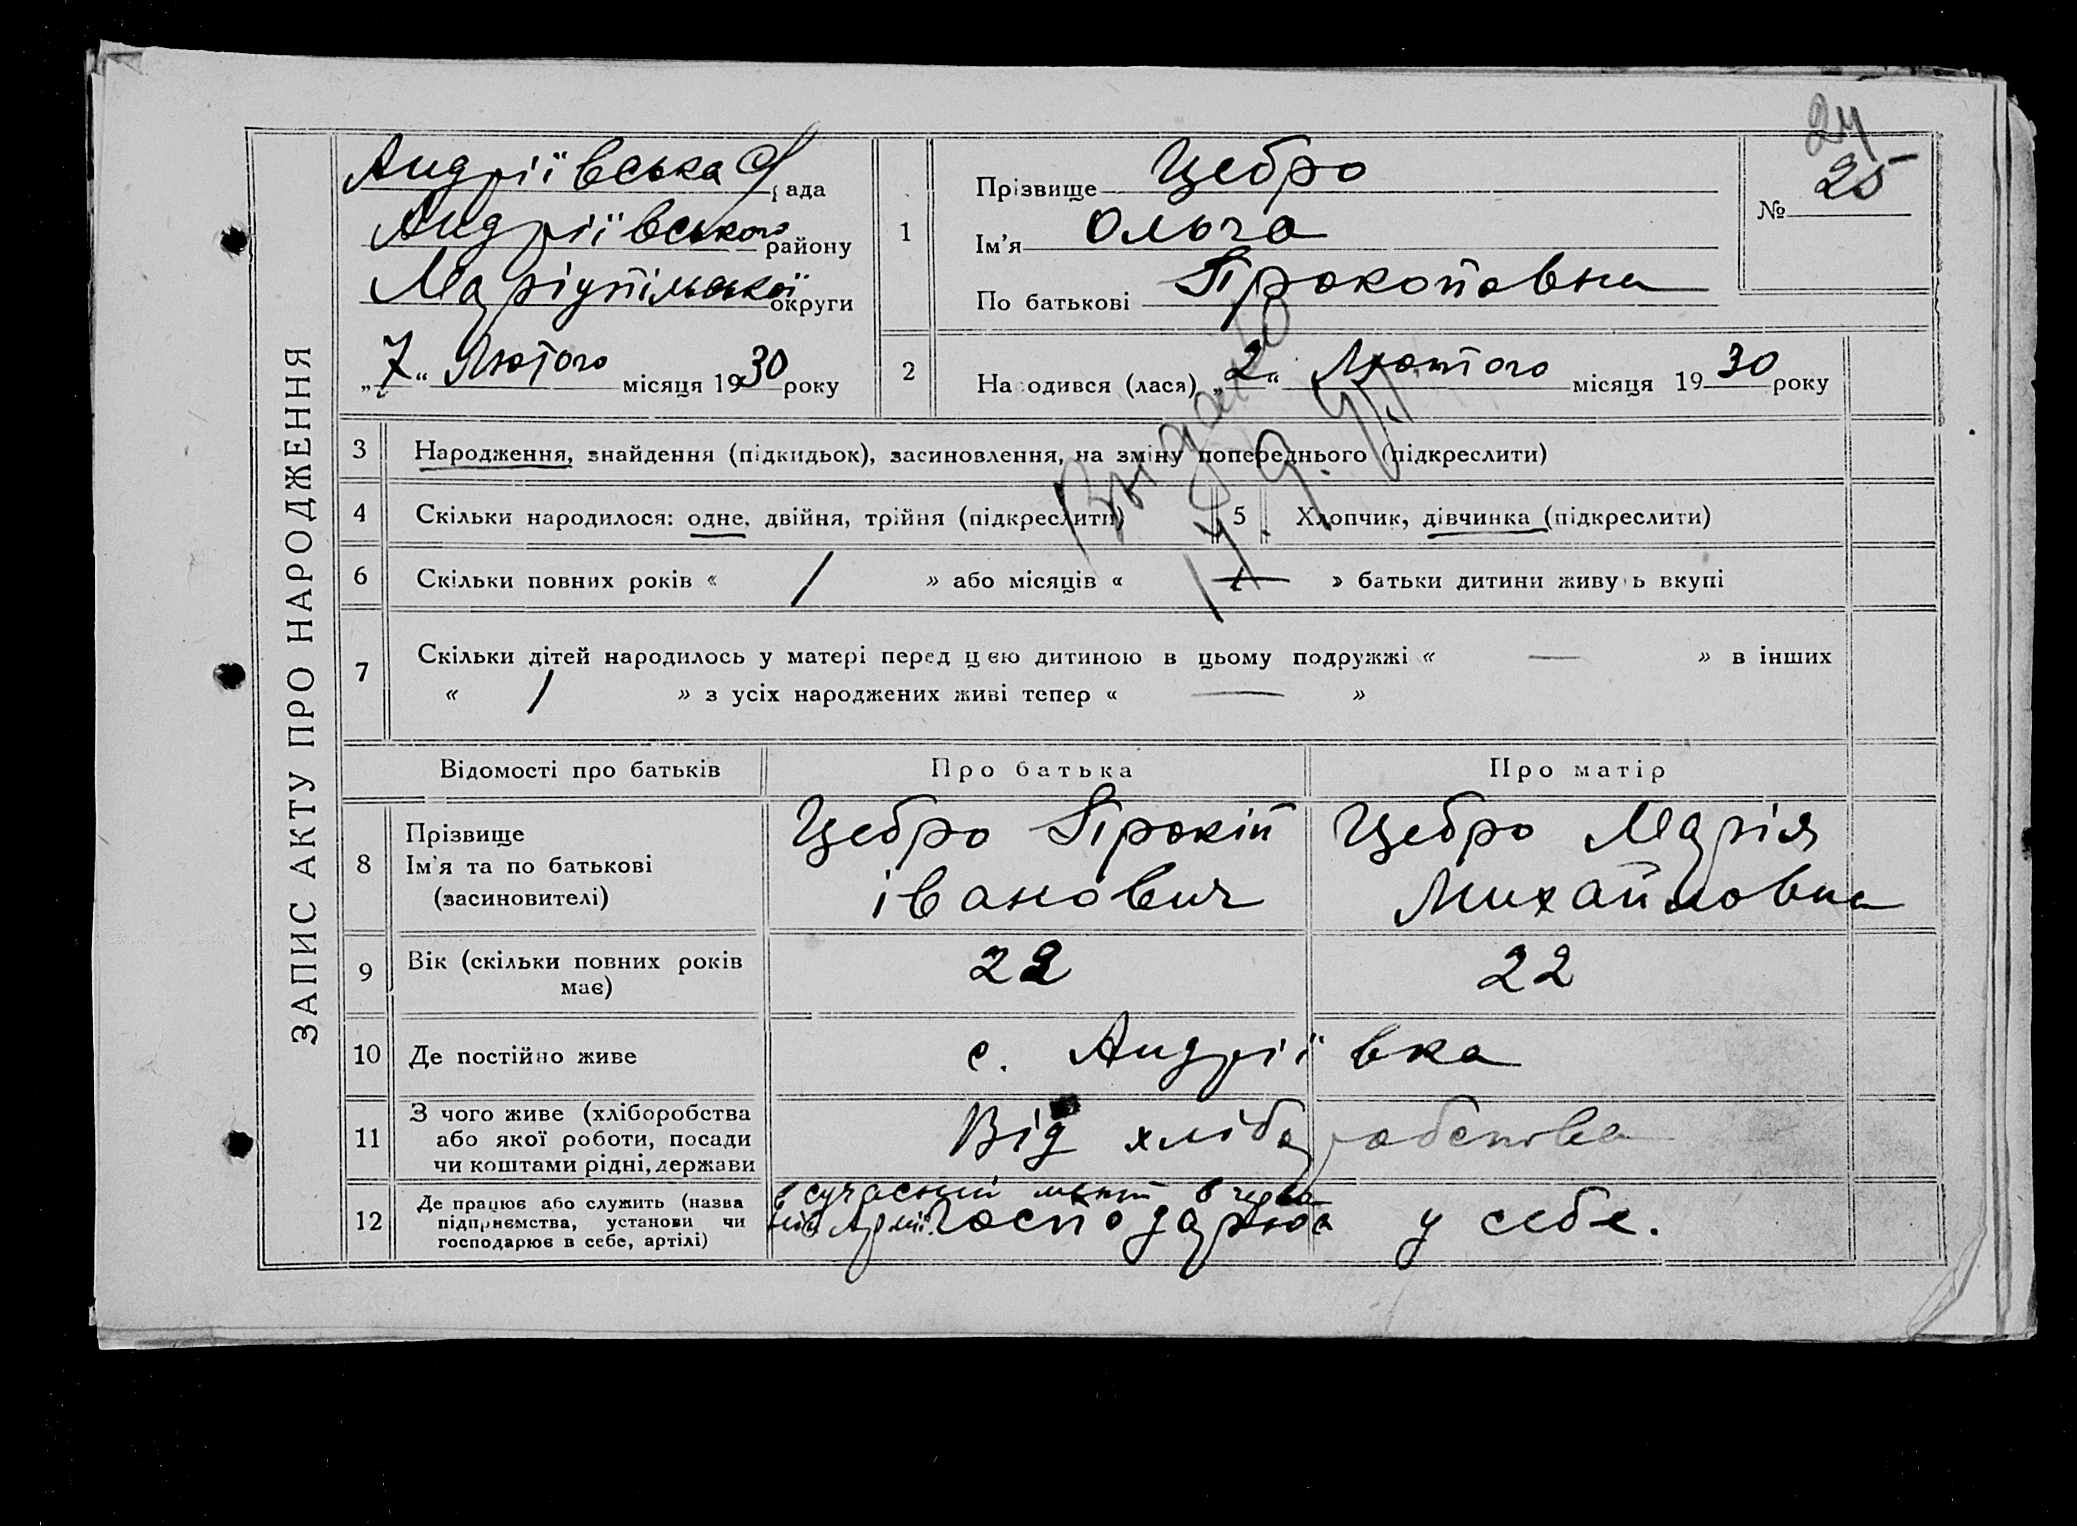 ЗАПИС АКТУ ПРО НАРОДЖЕННЯ
24
Андріївська рада
Андріївського району
Маріупільської округи
„7“ Лютого місяця 1930 року
1
Прізвище Цебро
Ім’я Ольга
По батькові Прокоповна
№ 25
2
Народився (лася) „2“ Лютого місяця 1930 року
3 Народження, знайдення (підкидьок), засиновлення, на зміну попереднього (підкреслити)
4 Скільки народилося: одне, двійня, трійня (підкреслити)
5 Хлопчик, дівчинка (підкреслити)
6 Скільки повних років « / » або місяців « » батьки дитини живуть вкупі
7 Скільки дітей народилось у матері перед цією дитиною в цьому подружжі « — » в інших
« / » з усіх народжених живі тепер « — »
Відомості про батьків Про батька Про матір
8 Прізвище
Ім’я та по батькові
(засиновителі)
Цебро Прокіп
іванович
Цебро Марія
Михайловна
9 Вік (скільки повних років
має)
22 22
10 Де постійно живе с. Андріївка
11 З чого живе (хліборобства
або якої роботи, посади
чи коштами рідні, держави
Від хліборобства
12 Де працює або служить (назва
підприємства, установи чи
господарює в себе, артілі)
в сучасний мент в черво
ній Армії. Господарює у себе.